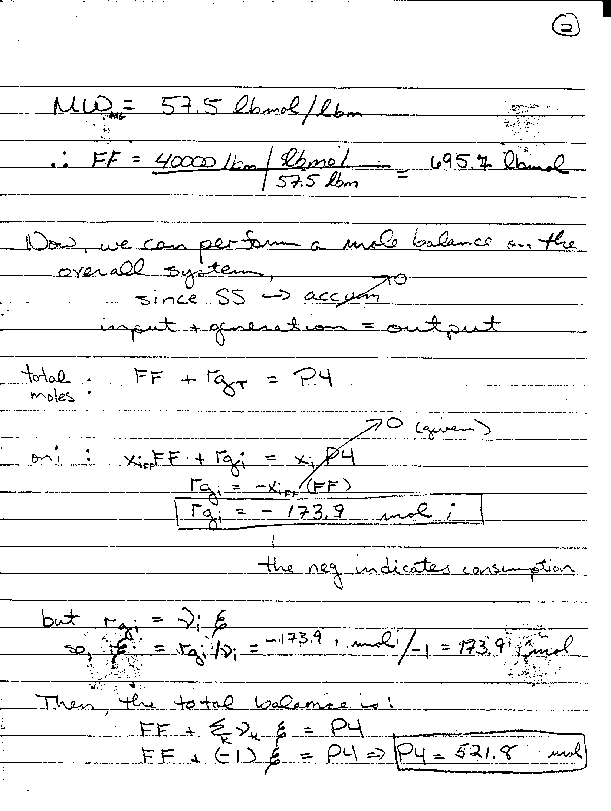 2
MW = 57.5 lbmol/lbm
∴ FF = 40000 lbm | lbmol = 695.7 lbmol
57.5 lbm
Now, we can perform a mole balance on the
overall system,
since SS → accum → 0
input + generation = output
total moles : FF + rgT = P4
on i : xiFF FF + rgi = xi P4 → 0 (given)
rgi = -xiFF (FF)
rgi = - 173.9 mol i
the neg indicates consumption
but rgi = νi ξ
so, ξ = rgi/νi = -173.9 mol/-1 = 173.9 mol
Then, the total balance is:
FF + Σk νk ξ = P4
FF + (-1) ξ = P4 ⇒ P4 = 521.8 mol